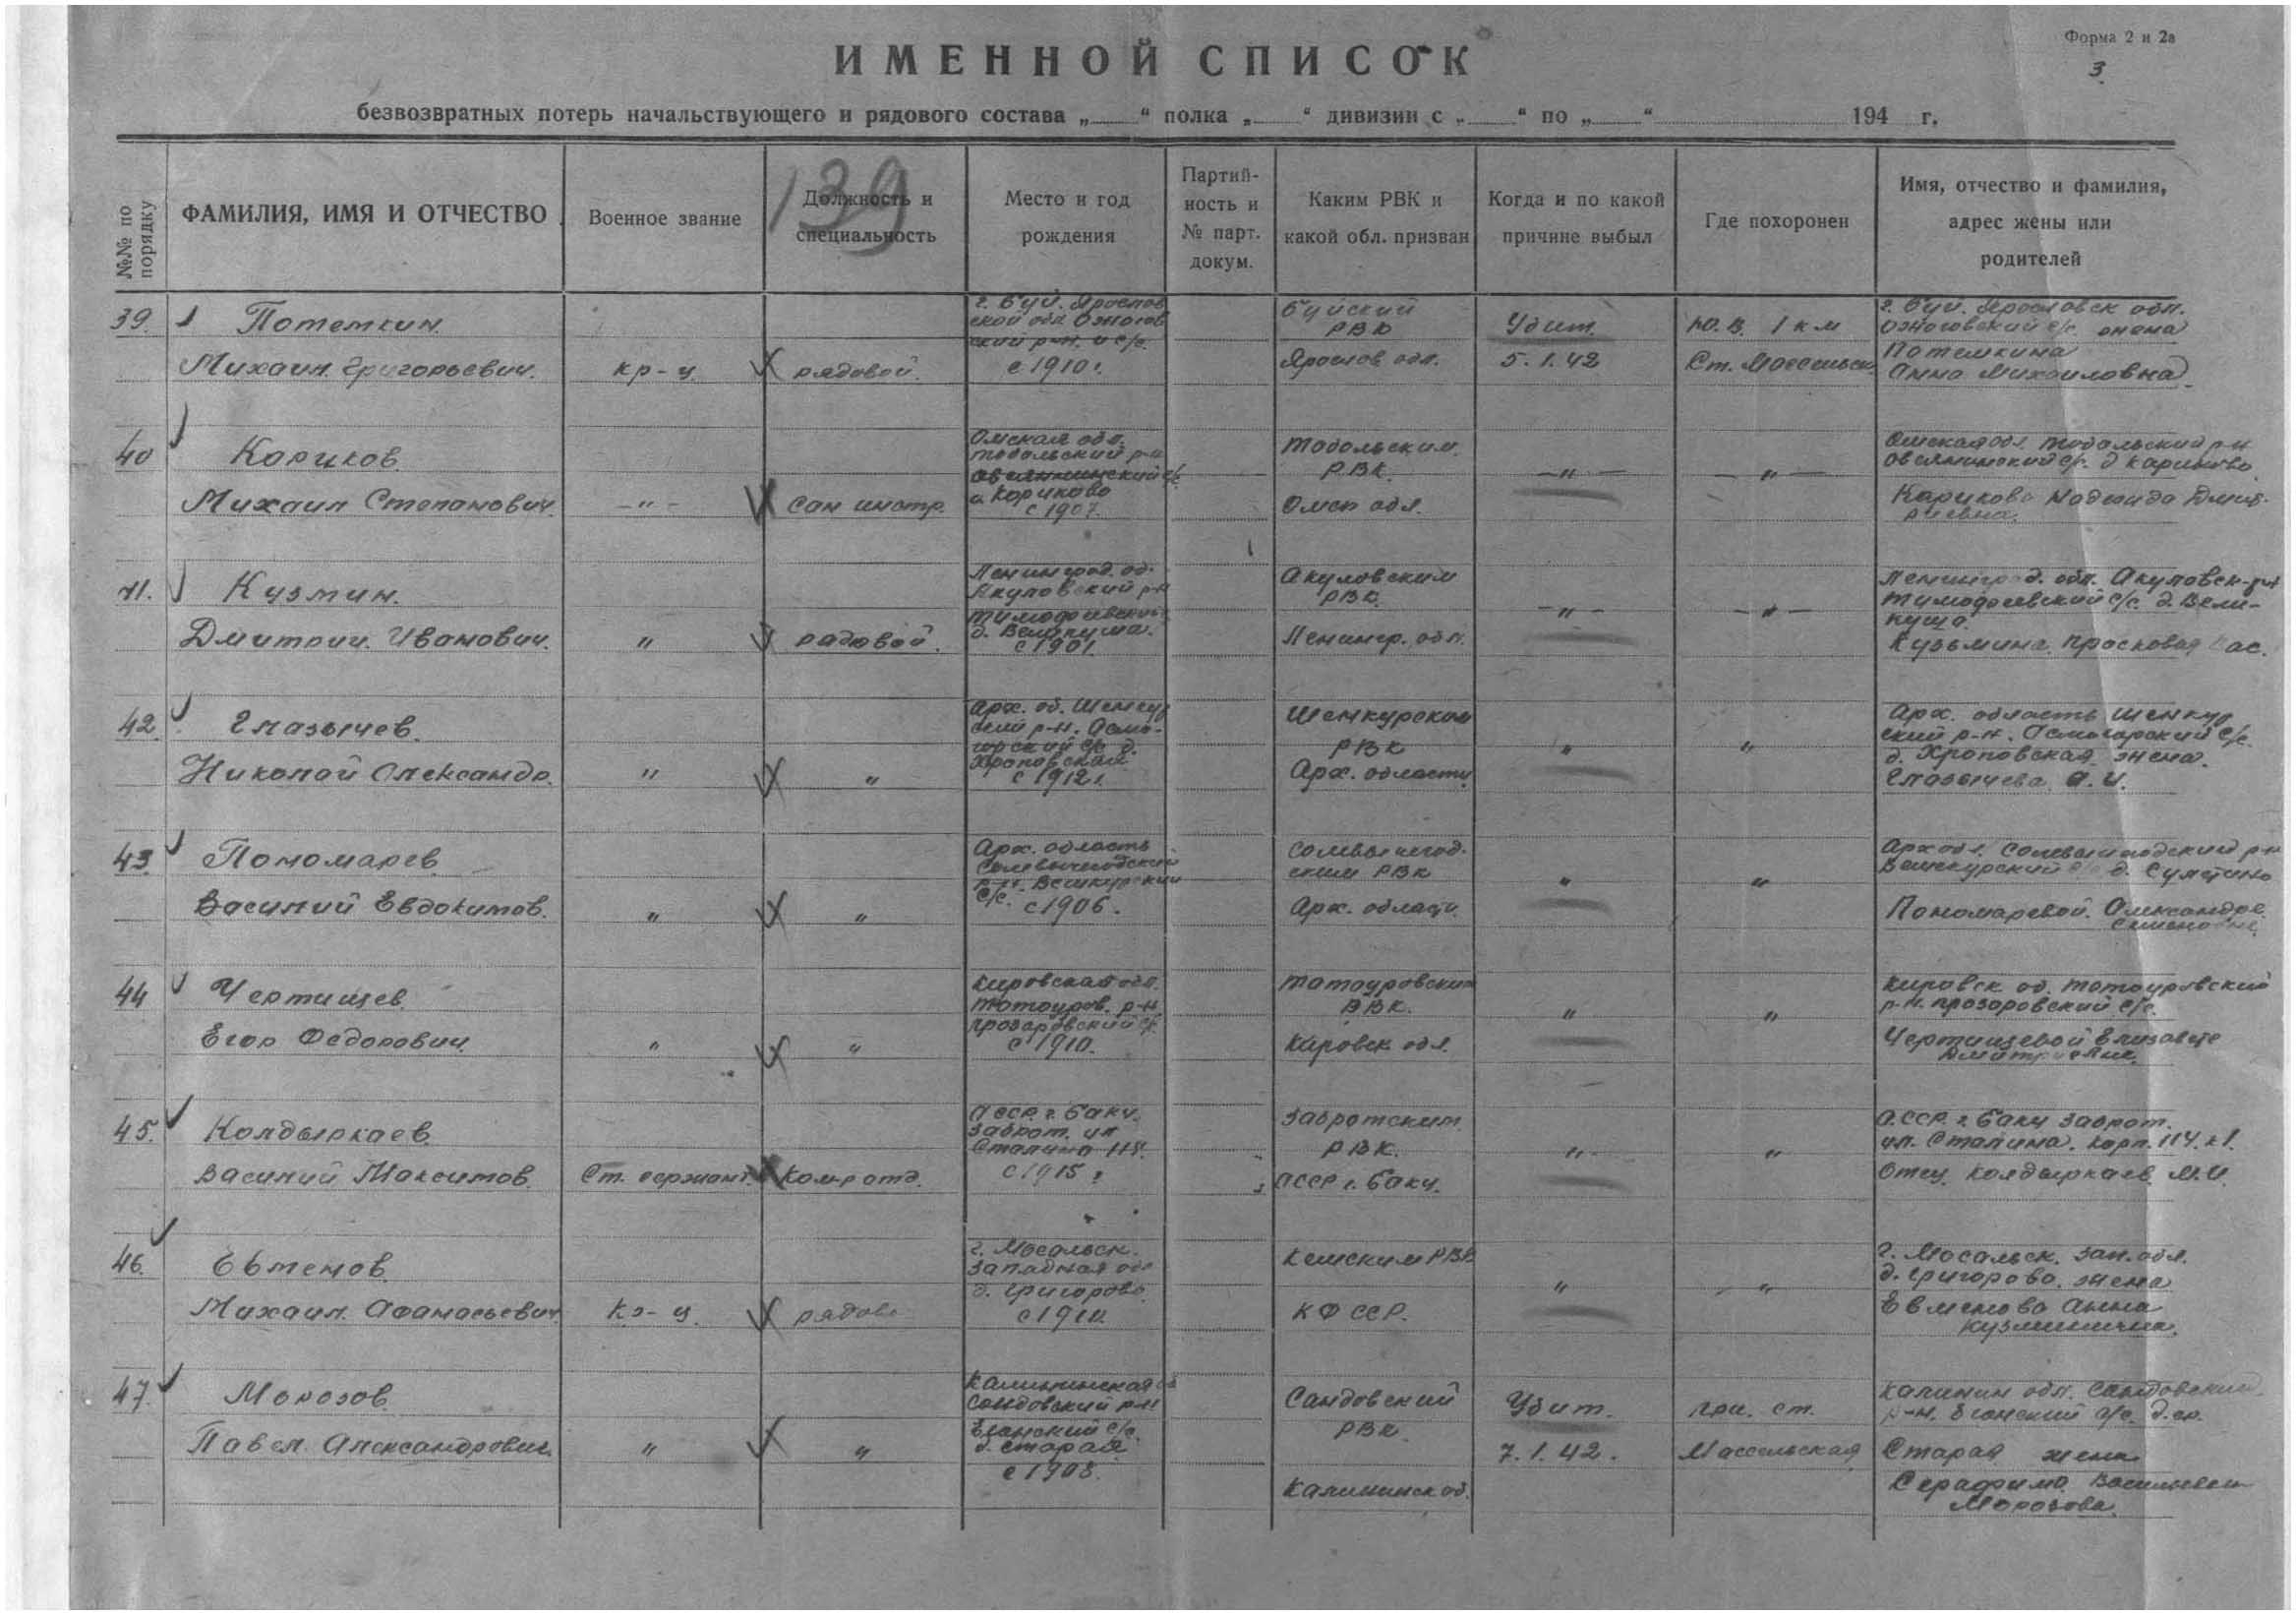 Форма 2 и 2а
3.
ИМЕННОЙ СПИСОК
безвозвратных потерь начальствующего и рядового состава „ “ полка „ “ дивизии с „ “ по „ “ 194 г.
139
№№ по порядку
ФАМИЛИЯ, ИМЯ И ОТЧЕСТВО
Военное звание
Должность и специальность
Место и год рождения
Партийность и № парт. докум.
Каким РВК и какой обл. призван
Когда и по какой причине выбыл
Где похоронен
Имя, отчество и фамилия, адрес жены или родителей
39.
Потемкин
Михаил Григорьевич.
кр-ц
рядовой.
г. Буй. Ярослов
ской обл.
с 1910г.
Буйский
РВК
Ярослов обл.
Убит.
5.1.42
Ю.В. 1 км
Ст. Массельск.
г. Буй. Ярословск обл.
с/с жена
Потемкина
Анна Михаиловна
40
Кориков
Михаил Степанович.
—"—
сан инстр.
Омская обл.
Тобольский р-н
с/с
д Кориково
с 1907.
Тобольским
РВК.
Омск обл.
—"—
—"—
Омская обл. Тобольский р-н
с/с. д Кариково.
Карикова Надежда Дмит-
риевна.
41.
Кузмин.
Дмитрий. Иванович.
"
рядовой.
Ленинград. об.
Акуловский р-н
д. Великуша.
с 1901.
Акуловским
РВК.
Ленингр. обл.
—"—
—"—
Ленинград. обл. Акуловск р-н
Тимофеевский с/с. д. Вели-
куша.
Кузьмина Просковья Вас.
42.
Глазычев.
Николай Александр.
"
"
Арх. об. Шенкур
ский р-н.
горский с/с д.
Хроповская
с 1912г.
Шенкурским
РВК
Арх. области
"
"
Арх. область Шенкур
ский р-н. с/с.
д. Хроповская жена.
Глазычева А.И.
43
Пономарев
Василий Евдокимов.
"
"
Арх. область
Сольвычегодский
р-н. Вешкурский
с/с. с 1906.
Сольвычегод.
ским РВК
Арх. области.
"
"
Арх обл. Сольвычегодский р-н
Вешкурский д.
Пономаревой. Александре
Семеновне.
44
Чертищев
Егор Федорович
"
"
Кировская обл.
Татауров. р-н
Прозаровский с/с.
с 1910.
Татауровским
РВК.
Кировск обл.
"
"
Кировск об. Татауровский
р-н. Прозоровский с/с.
Чертищевой Елизавете
Дмитриевне.
45.
Колдыркаев
Василий Максимов.
Ст. сержант.
Ком-р отд.
АССР г. Баку.
Забрат. ул
Сталина 114.
с 1915г
Забратским
РВК.
АССР г. Баку.
"
"
АССР г. Баку Забрат.
ул. Сталина. корп. 114. к 1.
Отец Колдыркаев М.И.
46.
Евменов
Михаил. Афанасьевич.
Кр-ц.
рядово
г. Мосальск.
Западная обл
д. Григорово.
с 1910.
Кемским РВК
КФССР.
"
"
г. Мосальск. Зап. обл.
д. Григорово. жена
Евменова Анна
Кузминична.
47.
Морозов.
Павел Александрович.
"
"
Калининская об
Сандовский р-н
с/с.
д. Старая
с 1908.
Сандовский
РВК
Калининск об.
Убит.
7.1.42.
при. ст.
Массельская
Калинин обл. Сандовский
р-н. с/с. дер.
Старая жена
Серафима Васильевн
Морозова.